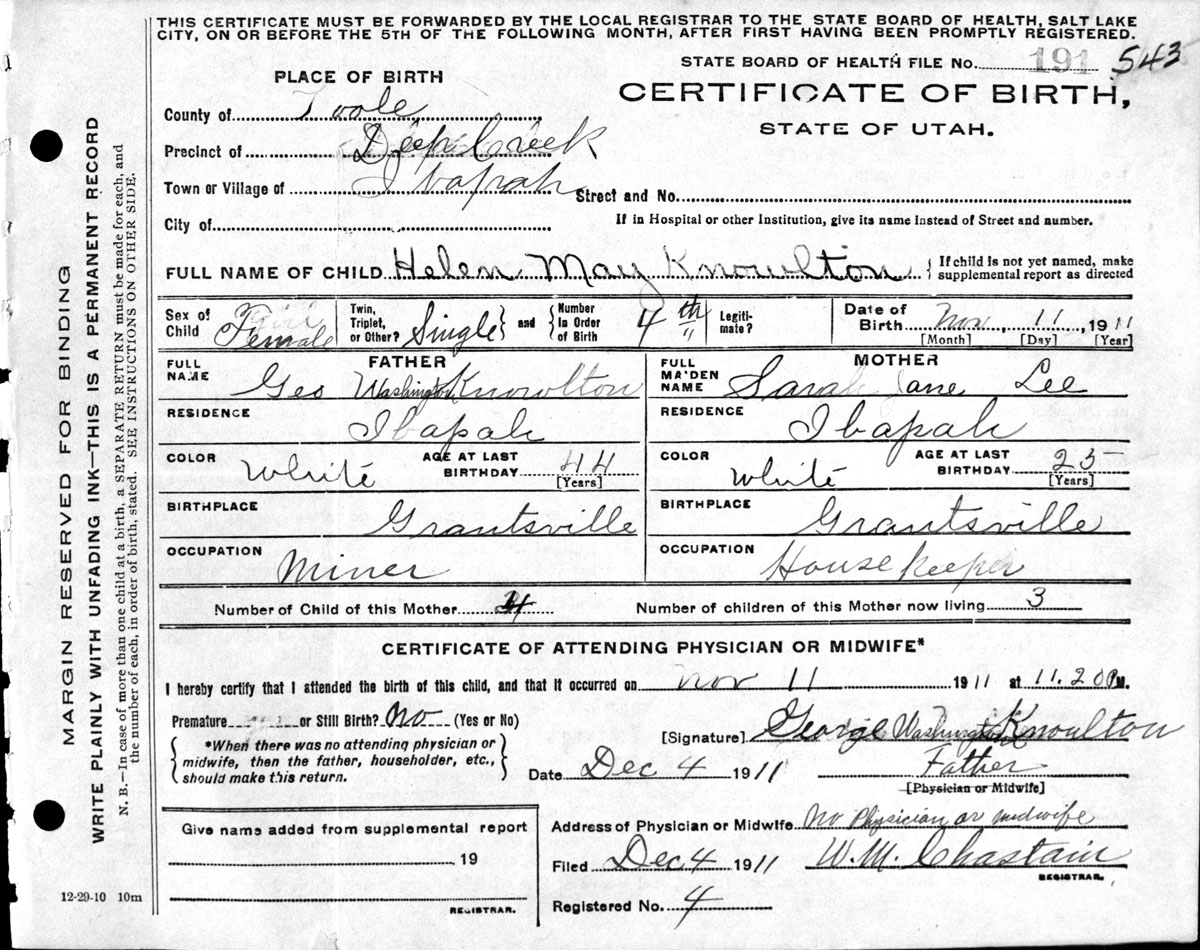 THIS CERTIFICATE MUST BE FORWARDED BY THE LOCAL REGISTRAR TO THE STATE BOARD OF HEALTH, SALT LAKE
CITY, ON OR BEFORE THE 5TH OF THE FOLLOWING MONTH, AFTER FIRST HAVING BEEN PROMPTLY REGISTERED.
STATE BOARD OF HEALTH FILE No. 191 543
PLACE OF BIRTH
CERTIFICATE OF BIRTH,
STATE OF UTAH.
County of Toole
Precinct of Deep Creek
Town or Village of Ibapah Street and No.
City of
If in Hospital or other Institution, give its name instead of Street and number.
FULL NAME OF CHILD Helen May Knowlton { If child is not yet named, make
supplemental report as directed
Sex of Child Female
Twin, Triplet, or Other? Single } and { Number In Order of Birth 4th
Legiti-mate?
Date of Birth Nov, 11, 1911
[Month] [Day] [Year]
FATHER
FULL NAME Geo Washington Knowlton
RESIDENCE Ibapah
COLOR White AGE AT LAST BIRTHDAY 44 [Years]
BIRTHPLACE Grantsville
OCCUPATION Miner
MOTHER
FULL MAIDEN NAME Sarah Jane Lee
RESIDENCE Ibapah
COLOR White AGE AT LAST BIRTHDAY 25 [Years]
BIRTHPLACE Grantsville
OCCUPATION House Keeper
Number of Child of this Mother 4 Number of children of this Mother now living 3
CERTIFICATE OF ATTENDING PHYSICIAN OR MIDWIFE*
I hereby certify that I attended the birth of this child, and that it occurred on Nov 11 1911 at 11.20 P.M.
Premature or Still Birth? No (Yes or No)
{ *When there was no attending physician or
midwife, then the father, householder, etc.,
should make this return. }
[Signature] George Washington Knowlton
Father
Date Dec 4 1911
[Physician or Midwife]
Give name added from supplemental report
19
REGISTRAR.
Address of Physician or Midwife No Physician or midwife
Filed Dec 4 1911 W.M. Chastain
REGISTRAR.
Registered No. 4
12-29-10 10m
MARGIN RESERVED FOR BINDING
WRITE PLAINLY WITH UNFADING INK—THIS IS A PERMANENT RECORD
N. B.—In case of more than one child at a birth, a SEPARATE RETURN must be made for each, and
the number of each, in order of birth, stated. SEE INSTRUCTIONS ON OTHER SIDE.